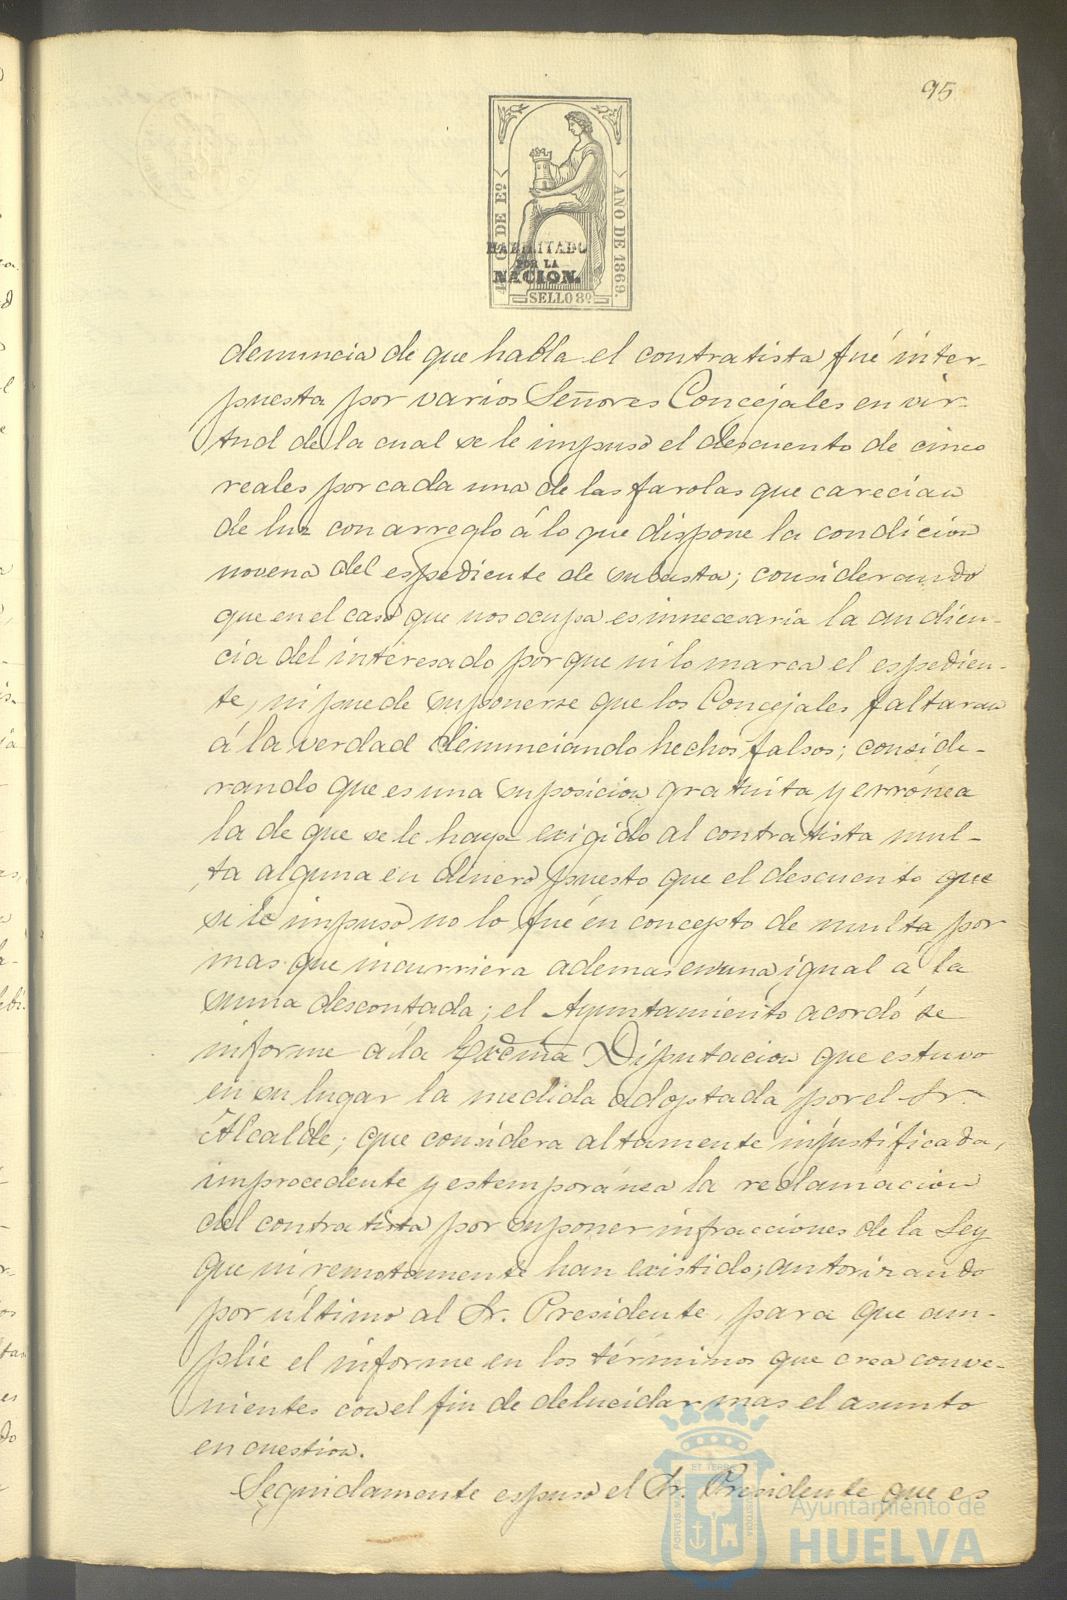 95
40 C. DE Eº
AÑO DE 1869.
HABILITADO
POR LA
NACION.
SELLO 8º
denuncia de que habla el contratista fué inter-
puesta por varios Señores Concejales en vir-
tud de la cual se le impuso el descuento de cinco
reales por cada una de las farolas que carecian
de luz con arreglo á lo que dispone la condicion
novena del espediente de subasta; considerando
que en el caso que nos ocupa es innecesaria la audien-
cia del interesado porque ni lo marca el espedien-
te, ni puede suponerse que los Concejales faltaran
á la verdad denunciando hechos falsos; conside-
rando que es una suposicion gratuita y errónea
la de que se le haya exigido al contratista mul-
ta alguna en dinero puesto que el descuento que
se le impuso no lo fué en concepto de multa por
mas que incurriera ademas en una igual á la
suma descontada; el Ayuntamiento acordó se
informe á la Excma Diputacion que estuvo
en su lugar la medida adoptada por el Sr.
Alcalde; que considera altamente injustificada,
improcedente y estemporánea la reclamacion
del contratista por suponer infracciones de la Ley
que ni remotamente han existido; autorizando
por último al Sr. Presidente, para que am-
plie el informe en los términos que crea conve-
nientes con el fin de delucidar mas el asunto
en cuestion.
Seguidamente espuso el Sr. Presidente que es
PORTUS MARIS
ET TERRE
CUSTODIA
Ayuntamiento de
HUELVA